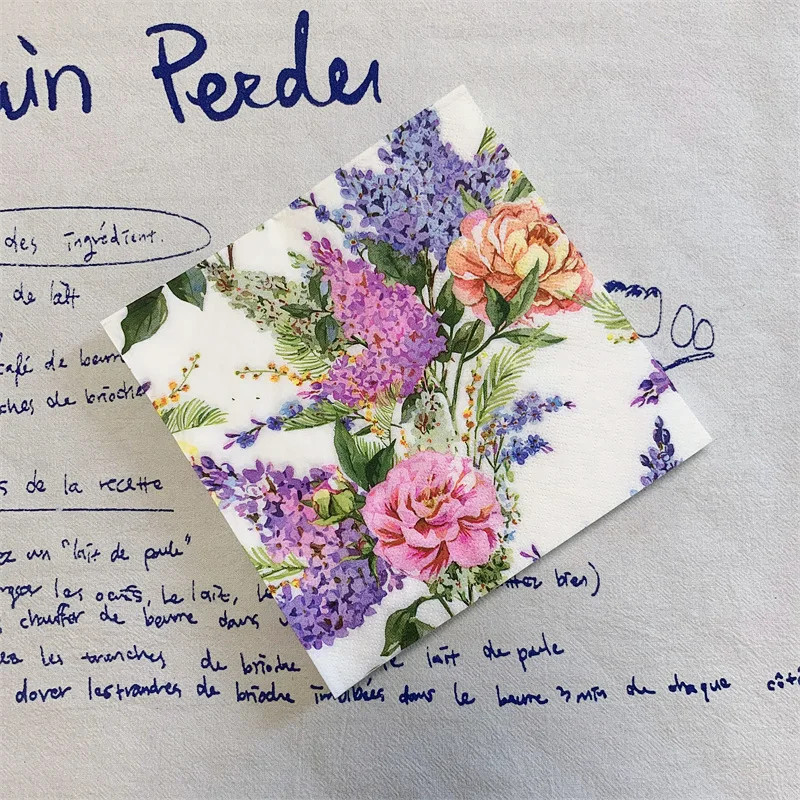 Pain Perdu
des ingrédient.
de lait
café de beurre
ches de brioche
s de la recette
ez un "lait de poule"
les oeufs, le lait, ttez bien)
chauffer de beurre dans
ez les tranches de brioche le lait de poule
dorer les tranches de brioche imbibées dans le beurre 3 min de chaque côté